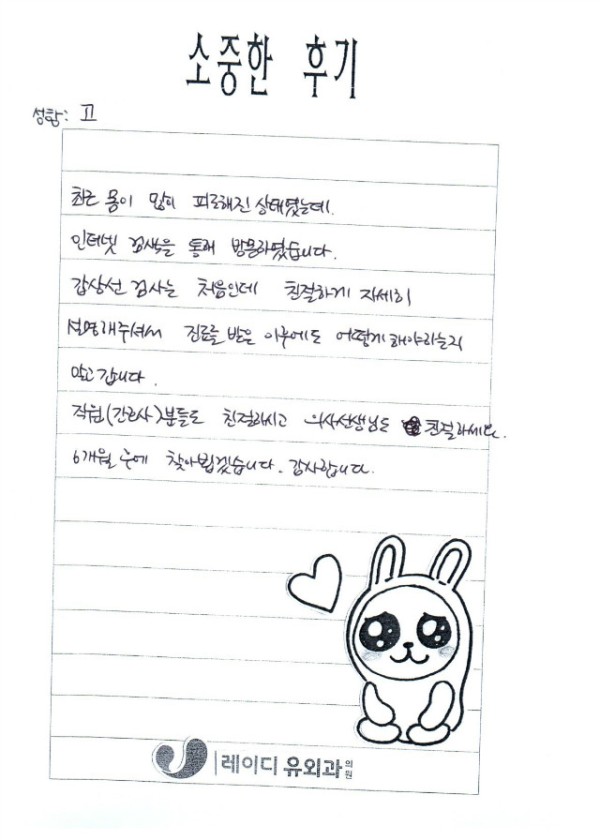 소중한 후기
성함: 고
최근 몸이 많이 피로해진 상태였는데.
인터넷 검색을 통해 방문하였습니다.
갑상선 검사는 처음인데 친절하게 자세히
설명해주셔서 진료를 받은 이후에도 어떻게 해야하는지
알고 갑니다.
직원(간호사)분들도 친절하시고 의사선생님도 친절하세요.
6개월 후에 찾아뵙겠습니다. 감사합니다.
레이디 유외과의원